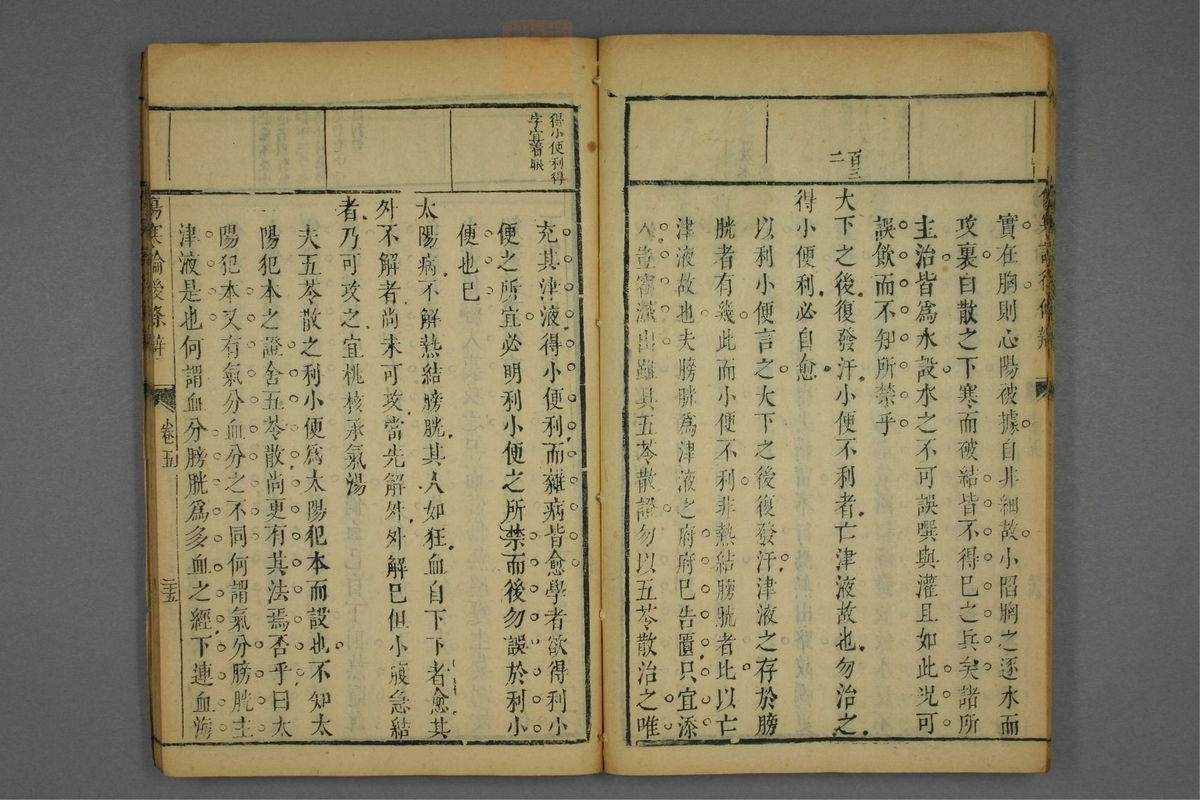 百三
二
實在胸則心陽被據自非細故小陷胸之逐水而
攻裏白散之下寒而破結皆不得已之兵矣諸所
主治皆爲水設水之不可誤噀與灌且如此况可
誤飲而不知所禁乎
大下之後復發汗小便不利者亡津液故也勿治之
得小便利必自愈
以利小便言之大下之後復發汗津液之存於膀
胱者有幾此而小便不利非熱結膀胱者比以亡
津液故也夫膀胱爲津液之府府已告匱只宜添
入豈容滲出雖具五苓散證勿以五苓散治之唯
得小便利得
字宜着眼
充其津液得小便利而雜病皆愈學者欲得利小
便之所宜必明利小便之所禁而後勿誤於利小
便也已
太陽病不解熱結膀胱其人如狂血自下下者愈其
外不解者尚未可攻當先解外外解已但小腹急結
者乃可攻之宜桃核承氣湯
夫五苓散之利小便爲太陽犯本而設也不知太
陽犯本之證舍五苓散尚更有其法焉否乎曰太
陽犯本又有氣分血分之不同何謂氣分膀胱主
津液是也何謂血分膀胱爲多血之經下連血海
傷寒論後條辨
卷五
三十五